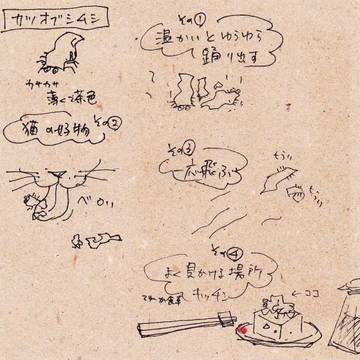 カツオブシムシ
カサカサ
薄くて茶色
その①
温かいとゆらゆら
踊り出す
その②
猫の好物
ペロリ
その③
一応飛ぶ
もうい
もうい
その④
よく見かける場所
キッチン
てゆーか食卓
←ココ